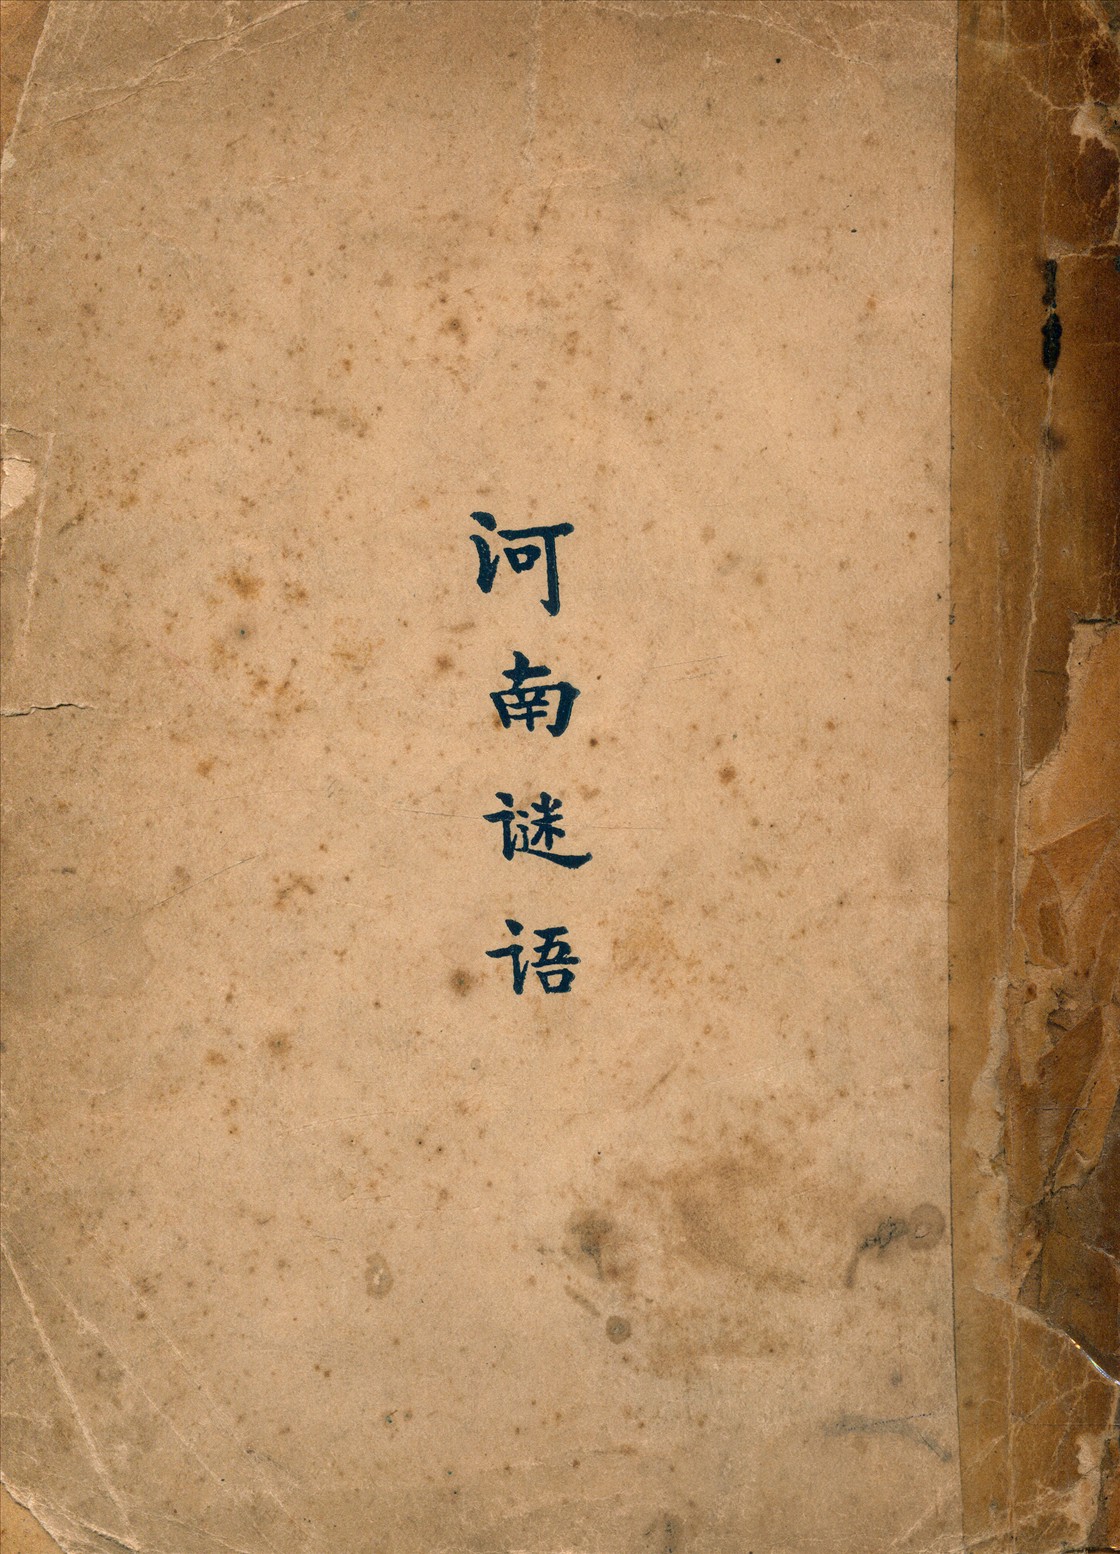 河南谜语